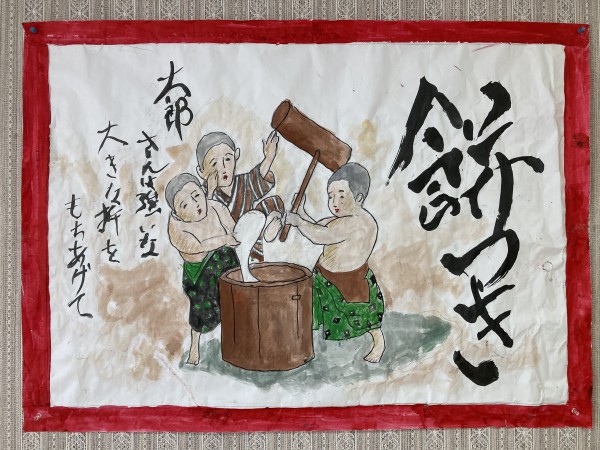 餅つき
太郎
さんは強いな
大きな杵を
もちあげて